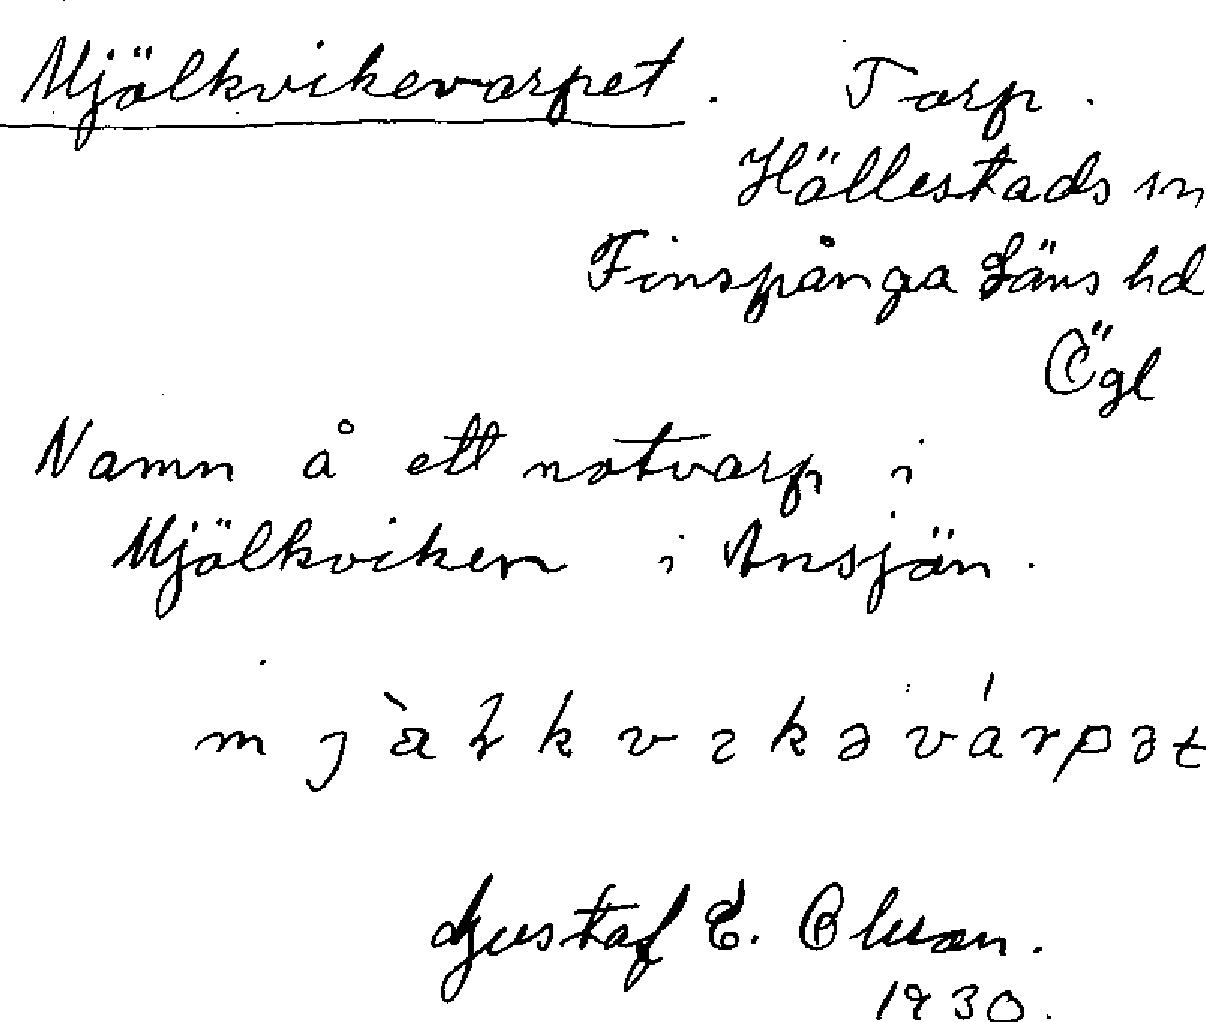 Mjölkvikevarpet. Torp.
Hällestads sn
Finspånga Läns hd
Ögl
Namn å ett notvarp i
Mjölkviken i Ansjön.
Gustaf E. Olsson.
1930.